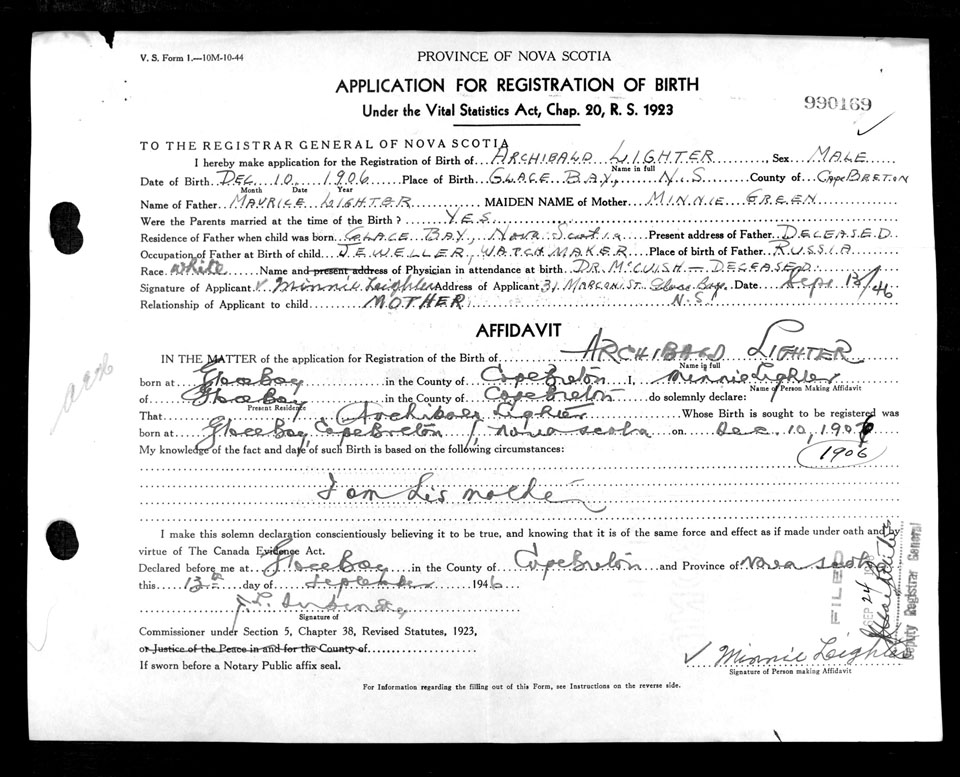 V. S. Form 1.—10M-10-44
PROVINCE OF NOVA SCOTIA
APPLICATION FOR REGISTRATION OF BIRTH
Under the Vital Statistics Act, Chap. 20, R. S. 1923
990169
TO THE REGISTRAR GENERAL OF NOVA SCOTIA
I hereby make application for the Registration of Birth of ARCHIBALD LIGHTER, Sex MALE
Name in full
Date of Birth DEC 10, 1906 Place of Birth GLACE BAY, N.S. County of Cape BRETON
Month Date Year
Name of Father MAURICE LIGHTER MAIDEN NAME of Mother MINNIE GREEN
Were the Parents married at the time of the Birth? YES
Residence of Father when child was born GLACE BAY, Nova Scotia Present address of Father DECEASED
Occupation of Father at Birth of child JEWELLER, WATCHMAKER Place of birth of Father RUSSIA
Race white Name and present address of Physician in attendance at birth DR McCUISH — DECEASED
Signature of Applicant Minnie Leighter Address of Applicant 31 MARCONI ST. Glace Bay Date Sept 13/46
Relationship of Applicant to child MOTHER N.S.
AFFIDAVIT
IN THE MATTER of the application for Registration of the Birth of ARCHIBALD LIGHTER
Name in full
born at Glace Bay in the County of Cape Breton I, Minnie Lighter
Name of Person Making Affidavit
of Glace Bay in the County of Cape Breton do solemnly declare:
Present Residence
That Archibald Lighter Whose Birth is sought to be registered was
born at Glace Bay Cape Breton, Nova Scotia on Dec 10, 1906
My knowledge of the fact and date of such Birth is based on the following circumstances:
1906
I am his mother
I make this solemn declaration conscientiously believing it to be true, and knowing that it is of the same force and effect as if made under oath and by
virtue of The Canada Evidence Act.
Declared before me at Glace Bay in the County of Cape Breton and Province of Nova Scotia
this 13th day of September 1946
Signature of
Commissioner under Section 5, Chapter 38, Revised Statutes, 1923,
or Justice of the Peace in and for the County of
If sworn before a Notary Public affix seal.
Minnie Leighter
Signature of Person making Affidavit
FILED
SEP 24 1946
Deputy Registrar General
For Information regarding the filling out of this Form, see Instructions on the reverse side.